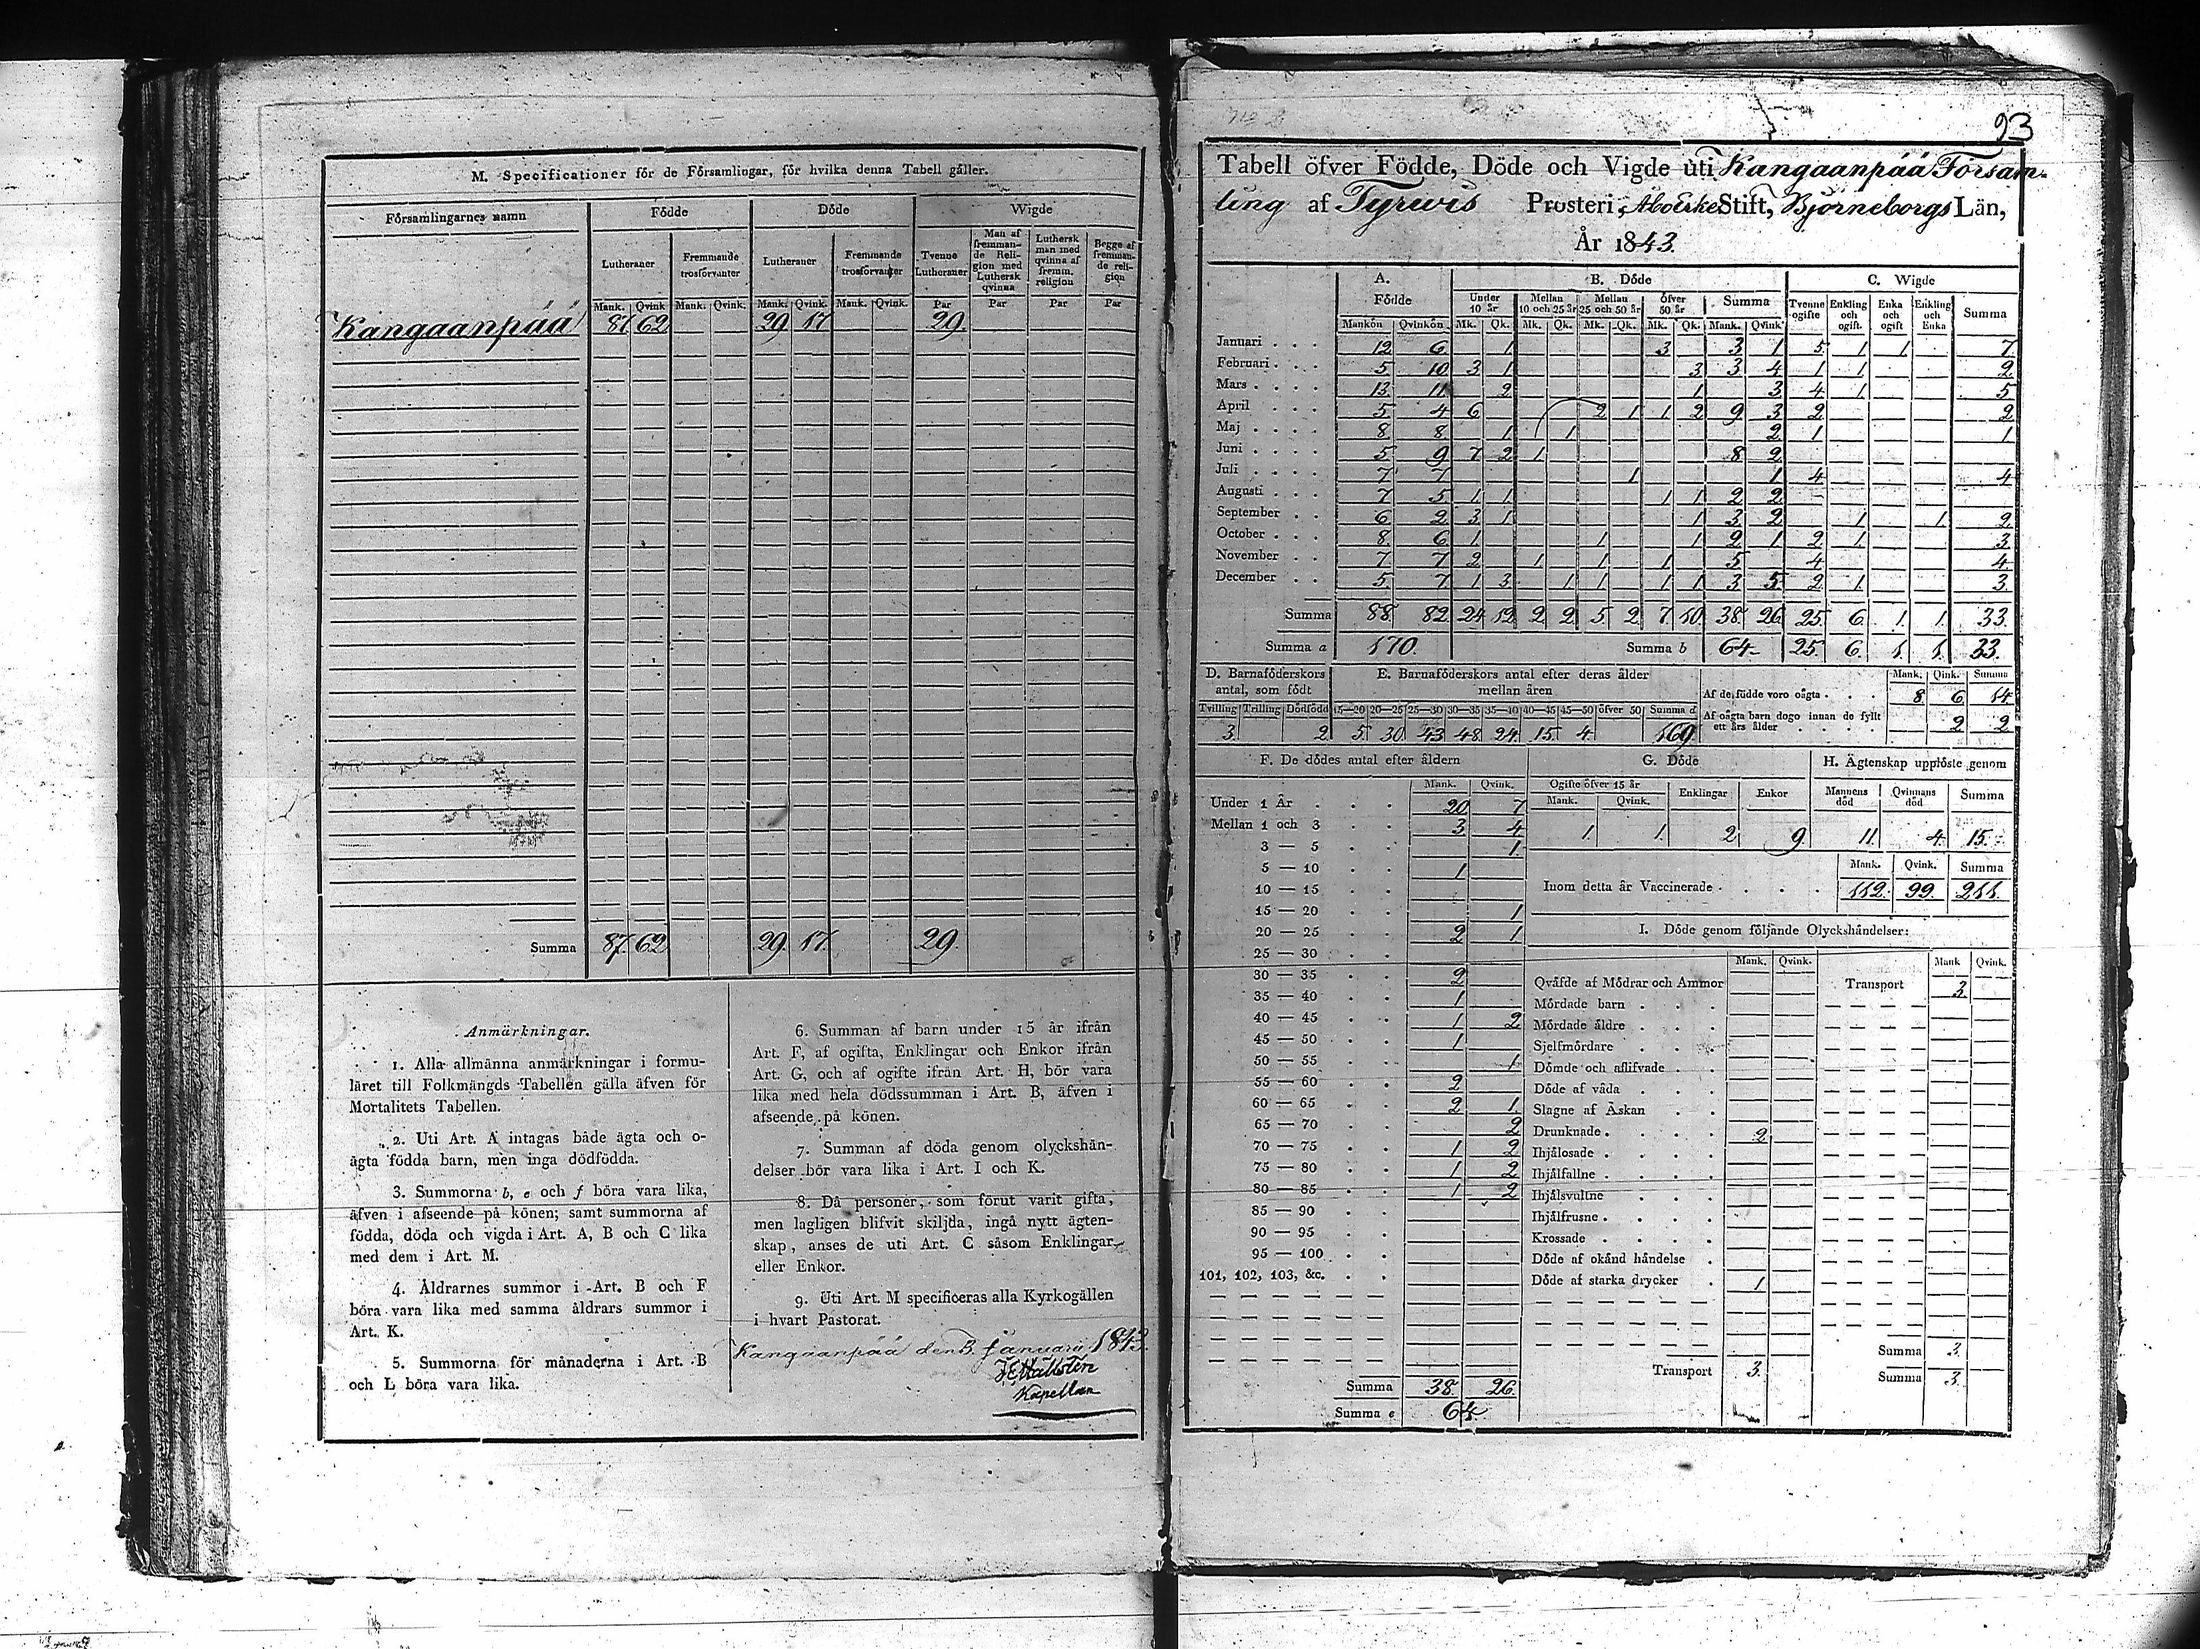 M. Specificationer för de Församlingar, för hvilka denna Tabell gäller.
Församlingarnes namn | Födde | Döde | Wigde
Lutheraner | Fremmande trosförvanter | Lutheraner | Fremmande trosförvanter | Tvenne Lutheraner | Man af fremmande Religion med Luthersk qvinna | Luthersk man med qvinna af fremm. religion | Begge af fremmande religion
Mank. | Qvink | Mank. | Qvink. | Mank. | Qvink. | Mank. | Qvink. | Par | Par | Par | Par
Kangaanpää | 87 | 62 | 29 | 17 | 29.
Summa | 87. | 62 | 29. | 17. | 29.
Anmärkningar.
1. Alla allmänna anmärkningar i formu-
läret till Folkmängds Tabellen gälla äfven för
Mortalitets Tabellen.
2. Uti Art. A intagas både ägta och o-
ägta födda barn, men inga dödfödda.
3. Summorna b, e och f böra vara lika,
äfven i afseende på könen; samt summorna af
födda, döda och vigda i Art. A, B och C lika
med dem i Art. M.
4. Åldrarnes summor i Art. B och F
böra vara lika med samma åldrars summor i
Art. K.
5. Summorna för månaderna i Art. B
och L böra vara lika.
6. Summan af barn under 15 år ifrån
Art. F, af ogifta, Enklingar och Enkor ifrån
Art. G, och af ogifte ifrån Art. H, bör vara
lika med hela dödssumman i Art. B, äfven i
afseende på könen.
7. Summan af döda genom olyckshän-
delser bör vara lika i Art. I och K.
8. Då personer, som förut varit gifta,
men lagligen blifvit skiljda, ingå nytt ägten-
skap, anses de uti Art. C såsom Enklingar
eller Enkor.
9. Uti Art. M specificeras alla Kyrkogällen
i hvart Pastorat.
Kangaanpää den 3. Januarii 1843.
Kapellan
93
Tabell öfver Födde, Döde och Vigde uti Kangaanpää Försam-
ling af Tyrvis Prosteri, Åbo Erke Stift, Björneborgs Län,
År 1843.
A. Födde | B. Döde | C. Wigde
Under 10 år | Mellan 10 och 25 år | Mellan 25 och 50 år | Öfver 50 år | Summa | Tvenne ogifte | Enkling och ogift. | Enka och ogift | Enkling och Enka | Summa
Mankön | Qvinkön | Mk. | Qk. | Mk. | Qk. | Mk. | Qk. | Mk. | Qk. | Mank. | Qvink
Januari | 12 | 6 | 1 | 3 | 3 | 1 | 5 | 1 | 1 | 7
Februari | 5 | 10 | 3 | 1 | 3 | 3 | 4 | 1 | 1 | 2
Mars | 13 | 11 | 2 | 1 | 3 | 4 | 1 | 5
April | 5 | 4 | 6 | 2 | 1 | 1 | 2 | 9 | 3 | 2 | 2
Maj | 8 | 8 | 1 | 1 | 2 | 1 | 1
Juni | 5 | 9 | 7 | 2 | 1 | 8 | 2
Juli | 7 | 7 | 1 | 1 | 4 | 4
Augusti | 7 | 5 | 1 | 1 | 1 | 1 | 2 | 2
September | 6 | 2 | 3 | 1 | 1 | 3 | 2 | 1 | 1 | 2
October | 8 | 6 | 1 | 1 | 1 | 2 | 1 | 2 | 1 | 3
November | 7 | 7 | 2 | 1 | 1 | 1 | 5 | 4 | 4
December | 5 | 7 | 1 | 3 | 1 | 1 | 1 | 1 | 3 | 5 | 2 | 1 | 3
Summa | 88 | 82 | 24 | 12 | 2 | 2 | 5 | 2 | 7 | 10 | 38 | 26 | 25 | 6 | 1 | 1 | 33
Summa a | 170. | Summa b | 64 | 25 | 6 | 1 | 1 | 33.
D. Barnaföderskors antal, som födt | E. Barnaföderskors antal efter deras ålder mellan åren | Mank. | Qink. | Summa
Af de födde voro oägta | 8 | 6 | 14
Af oägta barn dogo innan de fyllt ett års ålder | 2 | 2
Tvilling | Trilling | Dödfödd | 15—20 | 20—25 | 25—30 | 30—35 | 35—40 | 40—45 | 45—50 | öfver 50 | Summa d
3 | 2 | 5 | 30 | 43 | 48 | 24 | 15 | 4 | 169
F. De dödes antal efter åldern | G. Döde | H. Ägtenskap upplöste genom
Mank. | Qvink. | Ogifte öfver 15 år | Enklingar | Enkor | Mannens död | Qvinnans död | Summa
Mank. | Qvink.
1 | 1 | 2 | 9 | 11 | 4 | 15
Mank. | Qvink. | Summa
Inom detta år Vaccinerade | 112. | 99. | 211.
Under 1 År | 20 | 7
Mellan 1 och 3 | 3 | 4
3 — 5 | 1
5 — 10 | 1
10 — 15
15 — 20 | 1
20 — 25 | 2 | 1
25 — 30
30 — 35 | 2
35 — 40 | 1
40 — 45 | 1 | 2
45 — 50 | 1
50 — 55 | 1
55 — 60 | 2
60 — 65 | 2 | 1
65 — 70 | 2
70 — 75 | 1 | 2
75 — 80 | 1 | 2
80 — 85 | 1 | 2
85 — 90
90 — 95
95 — 100
101, 102, 103, &c.
Summa | 38. | 26.
Summa e | 64.
I. Döde genom följande Olyckshändelser:
Mank. | Qvink. | Mank | Qvink.
Qväfde af Mödrar och Ammor | Transport | 3.
Mördade barn
Mördade äldre
Sjelfmördare
Dömde och aflifvade
Döde af våda
Slagne af Åskan
Drunknade | 2
Ihjälosade
Ihjälfallne
Ihjälsvultne
Ihjälfrusne
Krossade
Döde af okänd händelse
Döde af starka drycker | 1
Summa | 3.
Transport | 3. | Summa | 3.